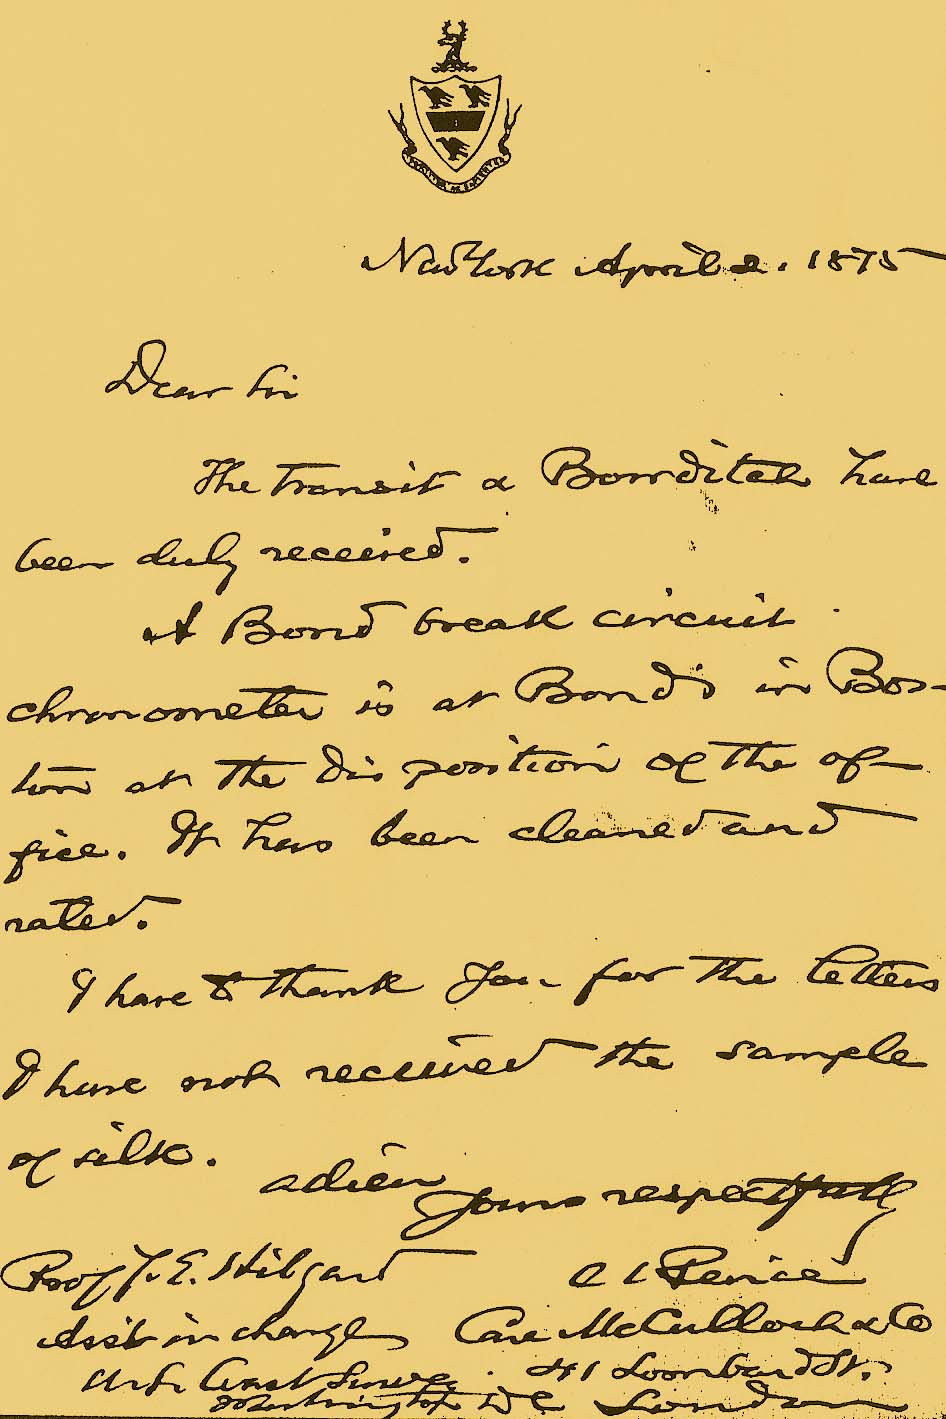 New York April 2. 1875
Dear Sir
The transit & Bowditch have
been duly received.
A Bond break circuit
chronometer is at Bond's in Bos-
ton at the disposition of the of-
fice. It has been cleaned and
rated.
I have to thank you for the letters
I have not received the sample
of silk.
adieu
Yours respectfully
C S Peirce
Care McCulloch & Co
41 Lombard St.
London
Prof J. E. Hilgard
Ass't in charge
U.S. Coast Survey
Washington D C